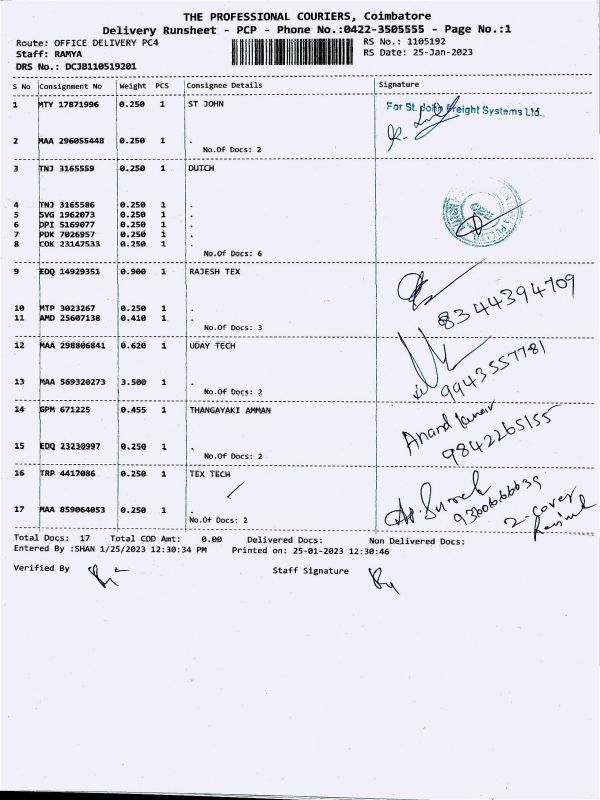 THE PROFESSIONAL COURIERS, Coimbatore
Delivery Runsheet - PCP - Phone No.:0422-3505555 - Page No.:1
Route: OFFICE DELIVERY PC4 RS No.: 1105192
Staff: RAMYA RS Date: 25-Jan-2023
DRS No.: DCJB110519201
S No Consignment No Weight PCS Consignee Details Signature
1 MTY 17871996 0.250 1 ST JOHN For St. John Freight Systems Ltd.,
2 MAA 296055448 0.250 1 .
No.Of Docs: 2
3 TNJ 3165559 0.250 1 DUTCH
4 TNJ 3165586 0.250 1 .
5 SVG 1962073 0.250 1 .
6 DPI 5169077 0.250 1 .
7 PDK 7026957 0.250 1 .
8 COK 23147533 0.250 1 .
No.Of Docs: 6
9 EDQ 14929351 0.900 1 RAJESH TEX
8344394709
10 MTP 3023267 0.250 1 .
11 AMD 25607138 0.410 1 .
No.Of Docs: 3
12 MAA 298806841 0.620 1 UDAY TECH
9943557781
13 MAA 569320273 3.500 1 .
No.Of Docs: 2
14 GPM 671225 0.455 1 THANGAYAKI AMMAN
Anand kumar
9842265155
15 EDQ 23230997 0.250 1 .
No.Of Docs: 2
16 TRP 4417086 0.250 1 TEX TECH
17 MAA 859064053 0.250 1 .
2-cover
No.Of Docs: 2
Total Docs: 17 Total COD Amt: 0.00 Delivered Docs: Non Delivered Docs:
Entered By :SHAN 1/25/2023 12:30:34 PM Printed on: 25-01-2023 12:30:46
Verified By Staff Signature